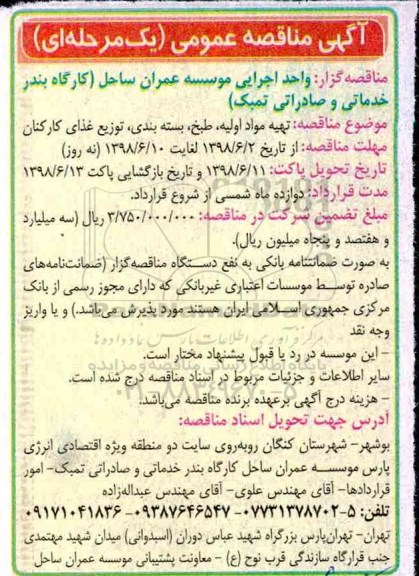 آگهی مناقصه عمومی (یک‌مرحله‌ای)
مناقصه‌گزار: واحد اجرایی موسسه عمران ساحل (کارگاه بندر
خدماتی و صادراتی تمبک)
موضوع مناقصه: تهیه مواد اولیه، طبخ، بسته بندی، توزیع غذای کارکنان
مهلت مناقصه: از تاریخ ۱۳۹۸/۶/۲ لغایت ۱۳۹۸/۶/۱۰ (نه روز)
تاریخ تحویل پاکت: ۱۳۹۸/۶/۱۱ و تاریخ بازگشایی پاکت ۱۳۹۸/۶/۱۳
مدت قرارداد: دوازده ماه شمسی از شروع قرارداد.
مبلغ تضمین شرکت در مناقصه: ۳/۷۵۰/۰۰۰/۰۰۰ ریال (سه میلیارد
و هفتصد و پنجاه میلیون ریال).
به صورت ضمانتنامه بانکی به نفع دستگاه مناقصه‌گزار (ضمانت‌نامه‌های
صادره توسط موسسات اعتباری غیربانکی که دارای مجوز رسمی از بانک
مرکزی جمهوری اسلامی ایران هستند مورد پذیرش می‌باشد.) و یا واریز
وجه نقد
- این موسسه در رد یا قبول پیشنهاد مختار است.
سایر اطلاعات و جزئیات مربوط در اسناد مناقصه درج شده است.
- هزینه درج آگهی برعهده برنده مناقصه می‌باشد.
آدرس جهت تحویل اسناد مناقصه:
بوشهر- شهرستان کنگان روبه‌روی سایت دو منطقه ویژه اقتصادی انرژی
پارس موسسه عمران ساحل کارگاه بندر خدماتی و صادراتی تمبک- امور
قراردادها- آقای مهندس علوی- آقای مهندس عبداله‌زاده
تلفن: ۵-۰۷۷۳۱۳۷۸۷۰۲ -۰۹۳۸۷۶۴۶۵۴۷ -۰۹۱۷۱۰۴۱۸۳۶
تهران- تهران‌پارس بزرگراه شهید عباس دوران (اسبدوانی) میدان شهید مهتمدی
جنب قرارگاه سازندگی قرب نوح (ع) - معاونت پشتیبانی موسسه عمران ساحل